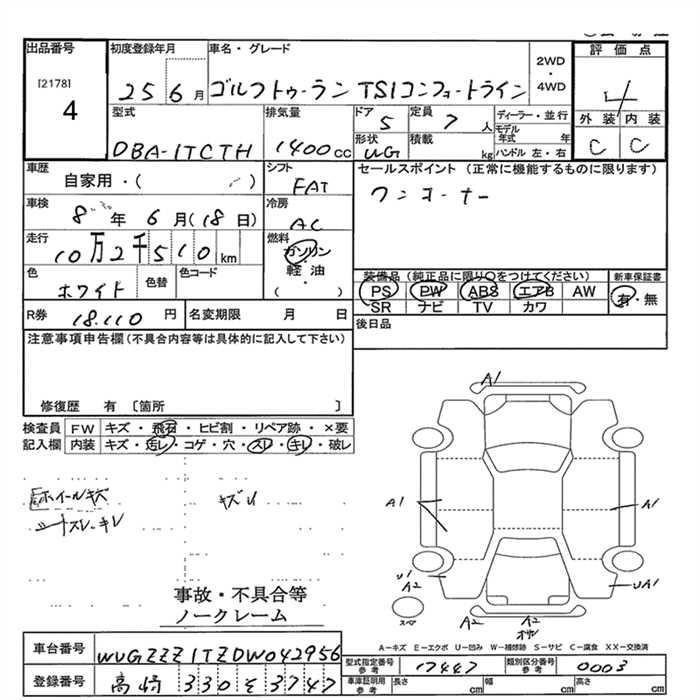 出品番号 初度登録年月 車名・グレード 2WD・4WD 評価点
[2178]
4
25 6月 ゴルフトゥーラン TSIコンフォートライン
4
型式 排気量 ドア 定員 ディーラー・並行 外装 内装
DBA-1TCTH 1400cc 5 7人 モデル年式 年
形状 積載 ハンドル 左・右
WG kg C C
車歴 シフト セールスポイント (正常に機能するものに限ります)
自家用・( ) FAT ワンオーナー
車検 冷房
8年 6月 (18日) AC
走行 燃料
10万2千510km ガソリン
軽油
( )
色 色替 色コード
ホワイト
装備品(純正品に限り〇をつけてください) 新車保証書
PS PW ABS エアB AW 有・無
SR ナビ TV カワ
R券 18,110円 名変期限 月 日
後日品
注意事項申告欄(不具合内容等は具体的に記入して下さい)
修復歴 有 〔箇所 〕
検査員 FW キズ・飛石・ヒビ割・リペア跡・×要
記入欄 内装 キズ・汚レ・コゲ・穴・スレ・キレ・破レ
ホイールキズ キズU
シートスレ・キレ
事故・不具合等
ノークレーム
A1
A1 A1
U1
A2 UA1
スペア
A2 A2
A-キズ E-エクボ U-凹み W-補修跡 S-サビ C-腐食 XX-交換済
車台番号 WVGZZZ1TZDW042956
型式指定番号 参考 17447 類別区分番号 参考 0003
登録番号 高崎 330 そ 3747
車庫証明用 参考 長さ cm 幅 cm 高さ cm